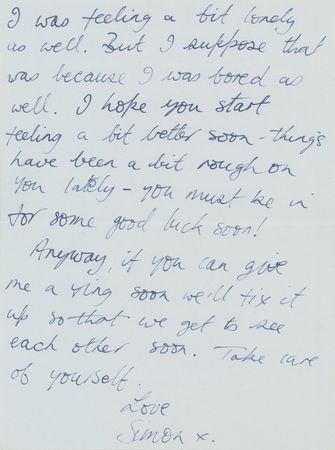 I was feeling a bit lonely
as well. But I suppose that
was because I was bored as
well. I hope you start
feeling a bit better soon - things
have been a bit rough on
you lately - you must be in
for some good luck soon!
Anyway, if you can give
me a ring soon we'll fix it
up so that we get to see
each other soon. Take care
of yourself.
Love
Simon x.